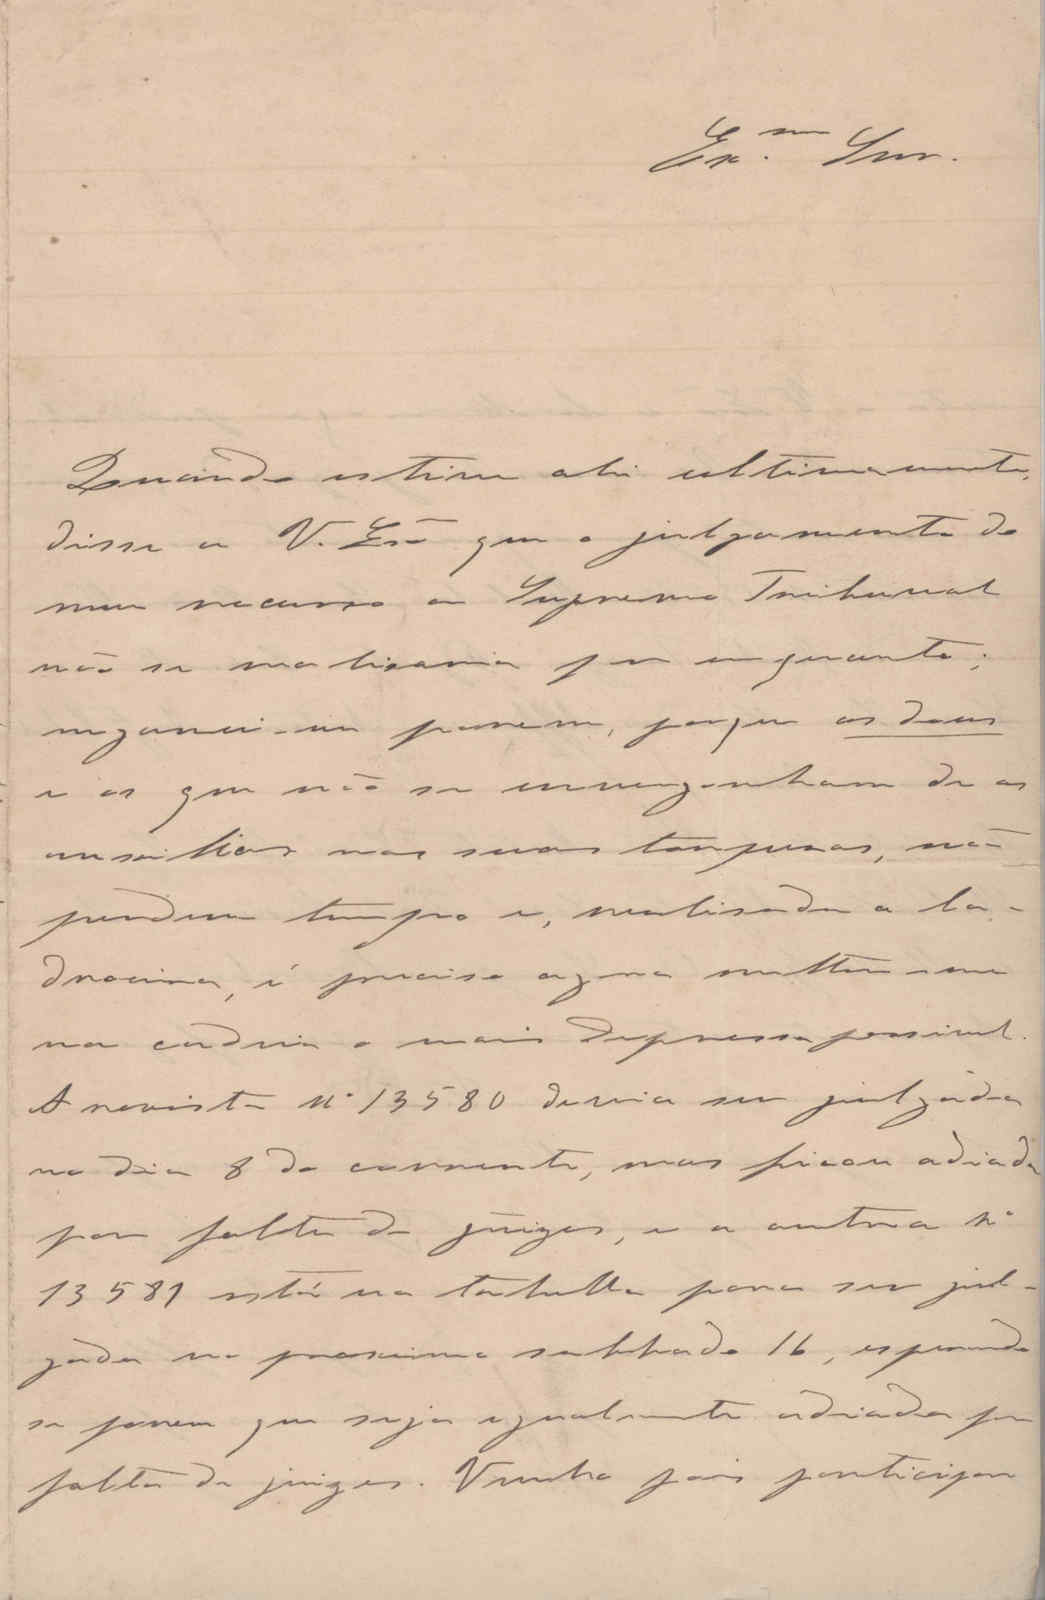 Ex.mo Snr.
Quando estive ahi ultimamente,
disse a V. Exa que o julgamento do
meu recurso ao Supremo Tribunal
não se realisaria por emquanto;
enganei-me porem, porque os dous
e os que não se envergonham de os
auxiliar nas suas torpesas, não
perdem tempo e, realisada a la-
droeira, é preciso agora metter-me
na cadeia o mais depressa possivel.
A revista nº 13580 devia ser julgada
no dia 8 do corrente, mas ficou adiada
por falta de juizes, e a outra nº
13581 está na tabella para ser jul-
gada no proximo sabbado 16, esperando
se porem que seja egualmente adiada por
falta de juizes. Venho pois participar